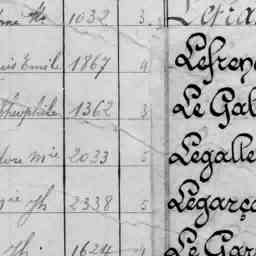 1032 3 Lefran
Emile 1867 9 Lefrenç
Théophile 1362 3 Le Gal
Mie 2033 5 Legalle
Jh 2338 5 Legarço
Jh. 1624 Le Gar